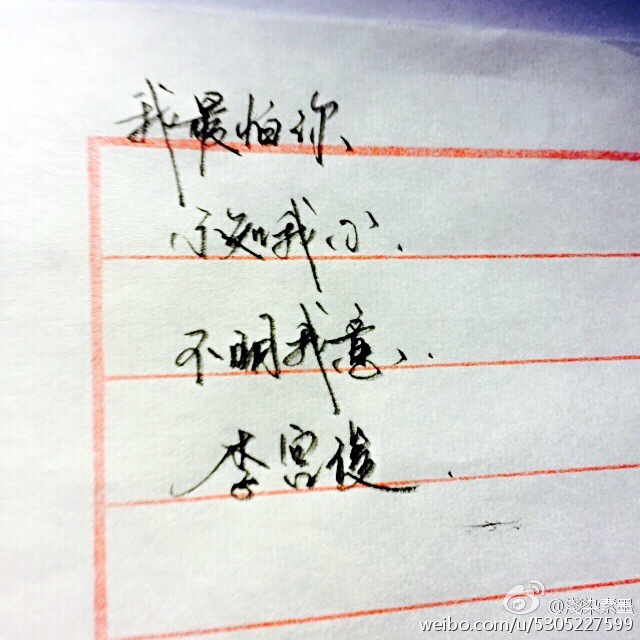 我最怕你、
不知我心.
不明我意、.
李宫俊.
@淺染素墨
weibo.com/u/5305227599